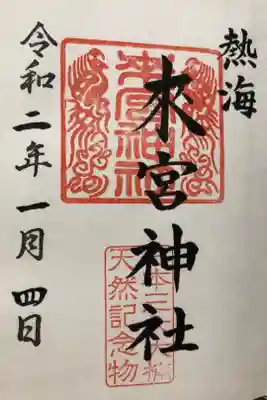 熱海
來宮神社
來宮神社
天然記念物
令和二年一月四日